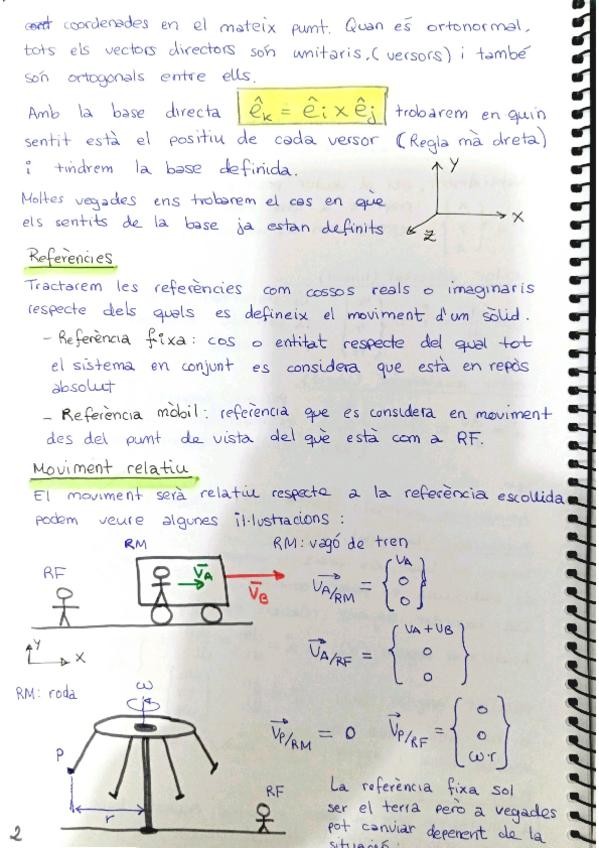 coordenades en el mateix punt. Quan és ortonormal,
tots els vectors directors són unitaris, (versors) i també
són ortogonals entre ells.
Amb la base directa ê_k = ê_i x ê_j trobarem en quin
sentit està el positiu de cada versor (Regla mà dreta)
i tindrem la base definida.
Moltes vegades ens trobarem el cas en què
els sentits de la base ja estan definits
Y
X
Z
Referències
Tractarem les referències com cossos reals o imaginaris
respecte dels quals es defineix el moviment d'un sòlid.
- Referència fixa: cos o entitat respecte del qual tot
el sistema en conjunt es considera que està en repòs
absolut
- Referència mòbil: referència que es considera en moviment
des del punt de vista del què està com a RF.
Moviment relatiu
El moviment serà relatiu respecte a la referència escollida
podem veure algunes il·lustracions:
RM
RM: vagó de tren
RF
V_A
V_B
V_A/RM = { VA 0 0 }
V_A/RF = { VA + VB 0 0 }
Y
X
RM: roda
ω
P
r
RF
V_P/RM = 0 V_P/RF = { 0 0 ω·r }
La referència fixa sol
ser el terra però a vegades
pot canviar depenent de la
situació.
2